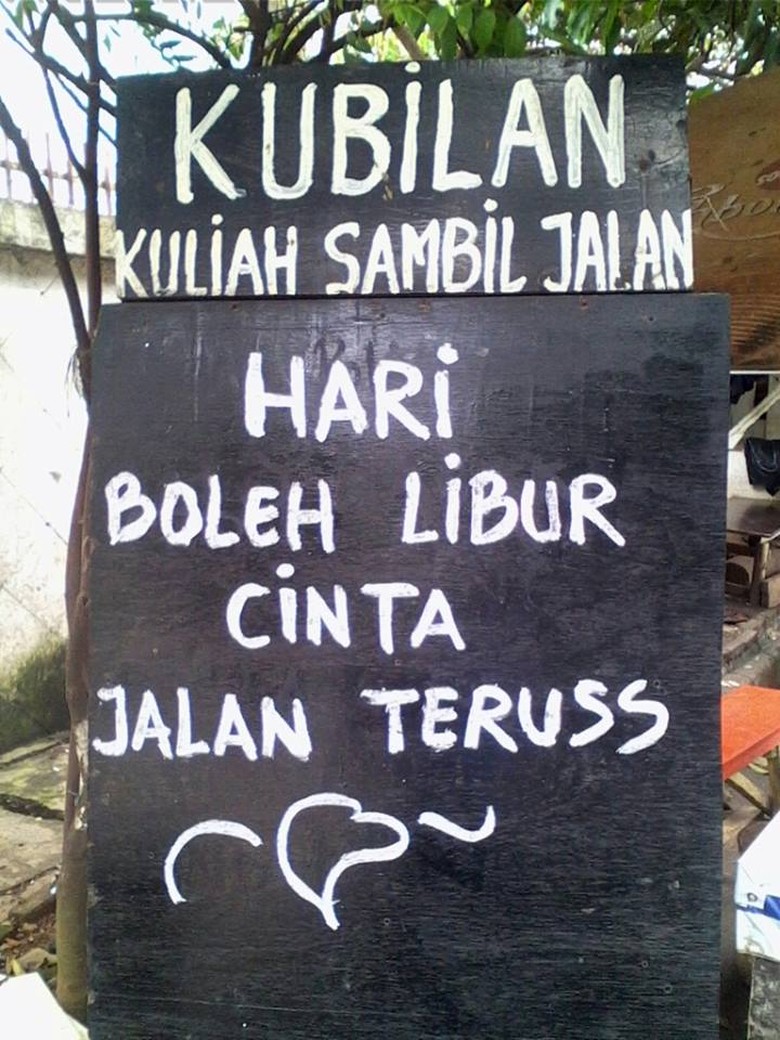 KUBILAN
KULIAH SAMBIL JALAN
HARI
BOLEH LIBUR
CINTA
JALAN TERUSS